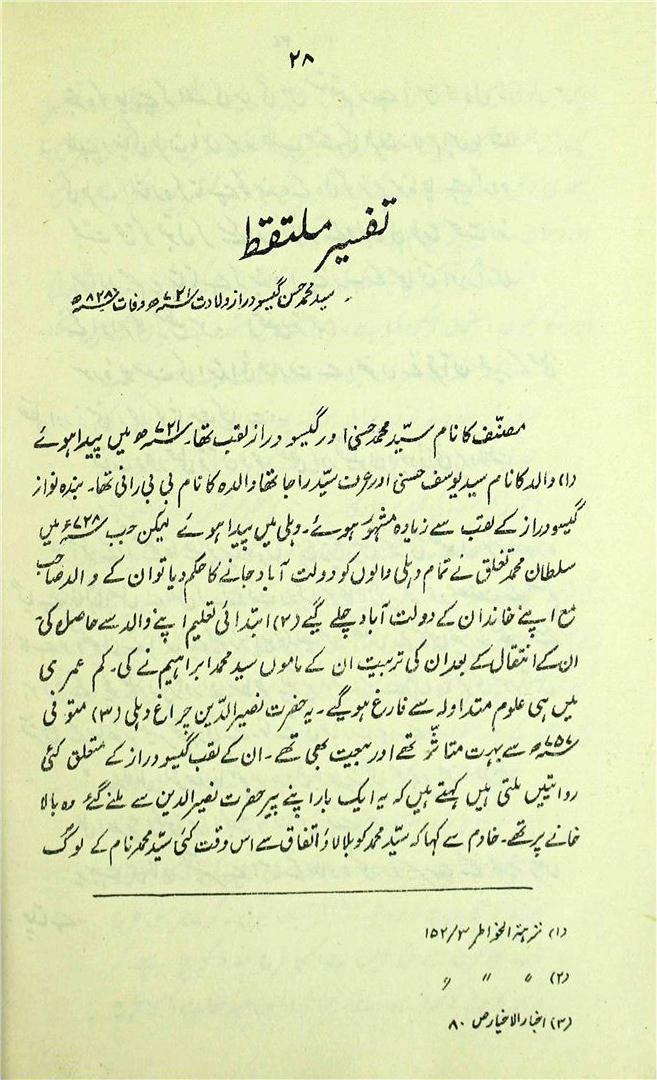 ۲۸
تفسیر ملتقط
سید محمد حسن گیسو دراز ولادت ۷۲۱ھ وفات ۸۲۸ھ
مصنّف کا نام سیّد محمد حسنی اور گیسو دراز لقب تھا۔ ۷۲۱ھ میں پیدا ہوئے
(۱) والد کا نام سید یوسف حسنی اور عرف سیّد راجا تھا والدہ کا نام بی بی رانی تھا۔ بندہ نواز
گیسو دراز کے لقب سے زیادہ مشہور ہوئے۔ دہلی میں پیدا ہوئے لیکن جب ۷۲۸ھ میں
سلطان محمد تغلق نے تمام دہلی والوں کو دولت آباد جانے کا حکم دیا تو ان کے والد صاحب
مع اپنے خاندان کے دولت آباد چلے گیے (۲) ابتدائی تعلیم اپنے والد سے حاصل کی
ان کے انتقال کے بعد ان کی تربیت ان کے ماموں سید محمد ابراہیم نے کی۔ کم عمری
میں ہی علوم متداولہ سے فارغ ہو گیے۔ یہ حضرت نصیر الدّین چراغ دہلی (۳) متوفی
۷۵۷ھ سے بہرت متاثّر تھے اور بیعیت بھی تھے۔ ان کے لقب گیسو دراز کے متعلق کئی
روائتیں ملتی ہیں کہتے ہیں کہ یہ ایک بار اپنے پیر حضرت نصیر الدین سے ملنے گئے وہ بالا
خانے پر تھے۔ خادم سے کہا کہ سیّد محمد کو بلا لاؤ اتفاق سے اس وقت کئی سیّد محمد نام کے لوگ
(۱) نزہۃ الخواطر ۱۵۲/۳
(۲) " " "
(۳) اخبار الاخیار ص ۸۰